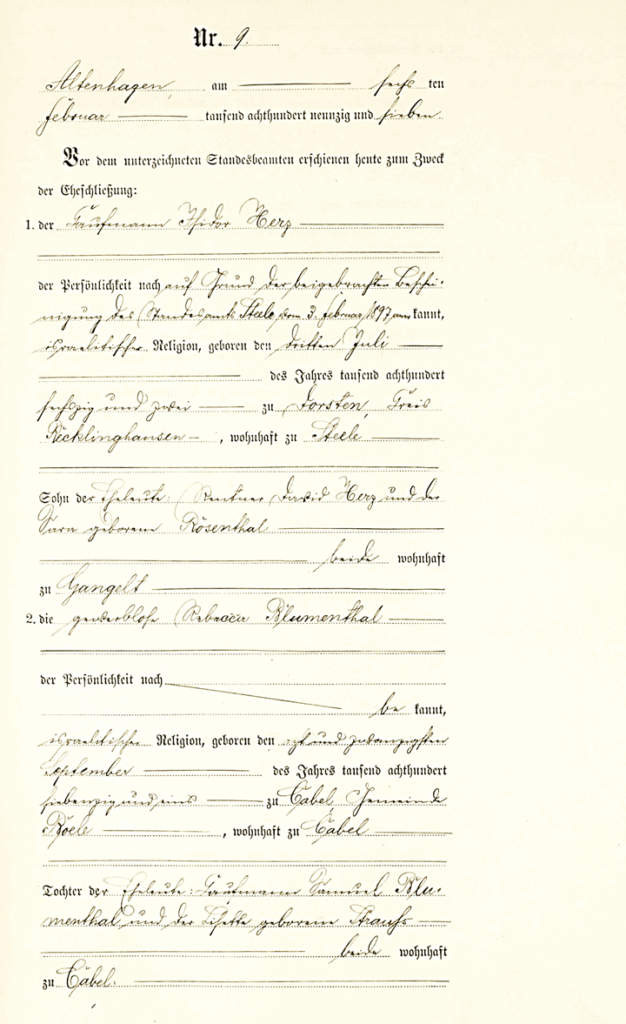 Nr. 9.
Altenhagen, am sechs ten
Februar tausend achthundert neunzig und sieben.
Vor dem unterzeichneten Standesbeamten erschienen heute zum Zweck
der Eheschließung:
1. der Kaufmann Isidor Herz
der Persönlichkeit nach auf Grund der beigebrachten Beschei-
nigung des Standesamts Steele vom 3. Februar 1897 aner kannt,
israelitischer Religion, geboren den dritten Juli
des Jahres tausend achthundert
sechszig und zwei zu Dorsten, Kreis
Recklinghausen, wohnhaft zu Steele
Sohn der Eheleute: Rentner David Herz und der
Sara geborene Rosenthal
beide wohnhaft
zu Gangelt
2. die gewerblose Rebecca Blumenthal
der Persönlichkeit nach
be kannt,
israelitischer Religion, geboren den acht und zwanzigsten
September des Jahres tausend achthundert
siebenzig und eins zu Cabel Gemeinde
Boele, wohnhaft zu Cabel
Tochter der Eheleute: Kaufmann Samuel Blu-
menthal und der Lisette geborene Strauss
beide wohnhaft
zu Cabel.